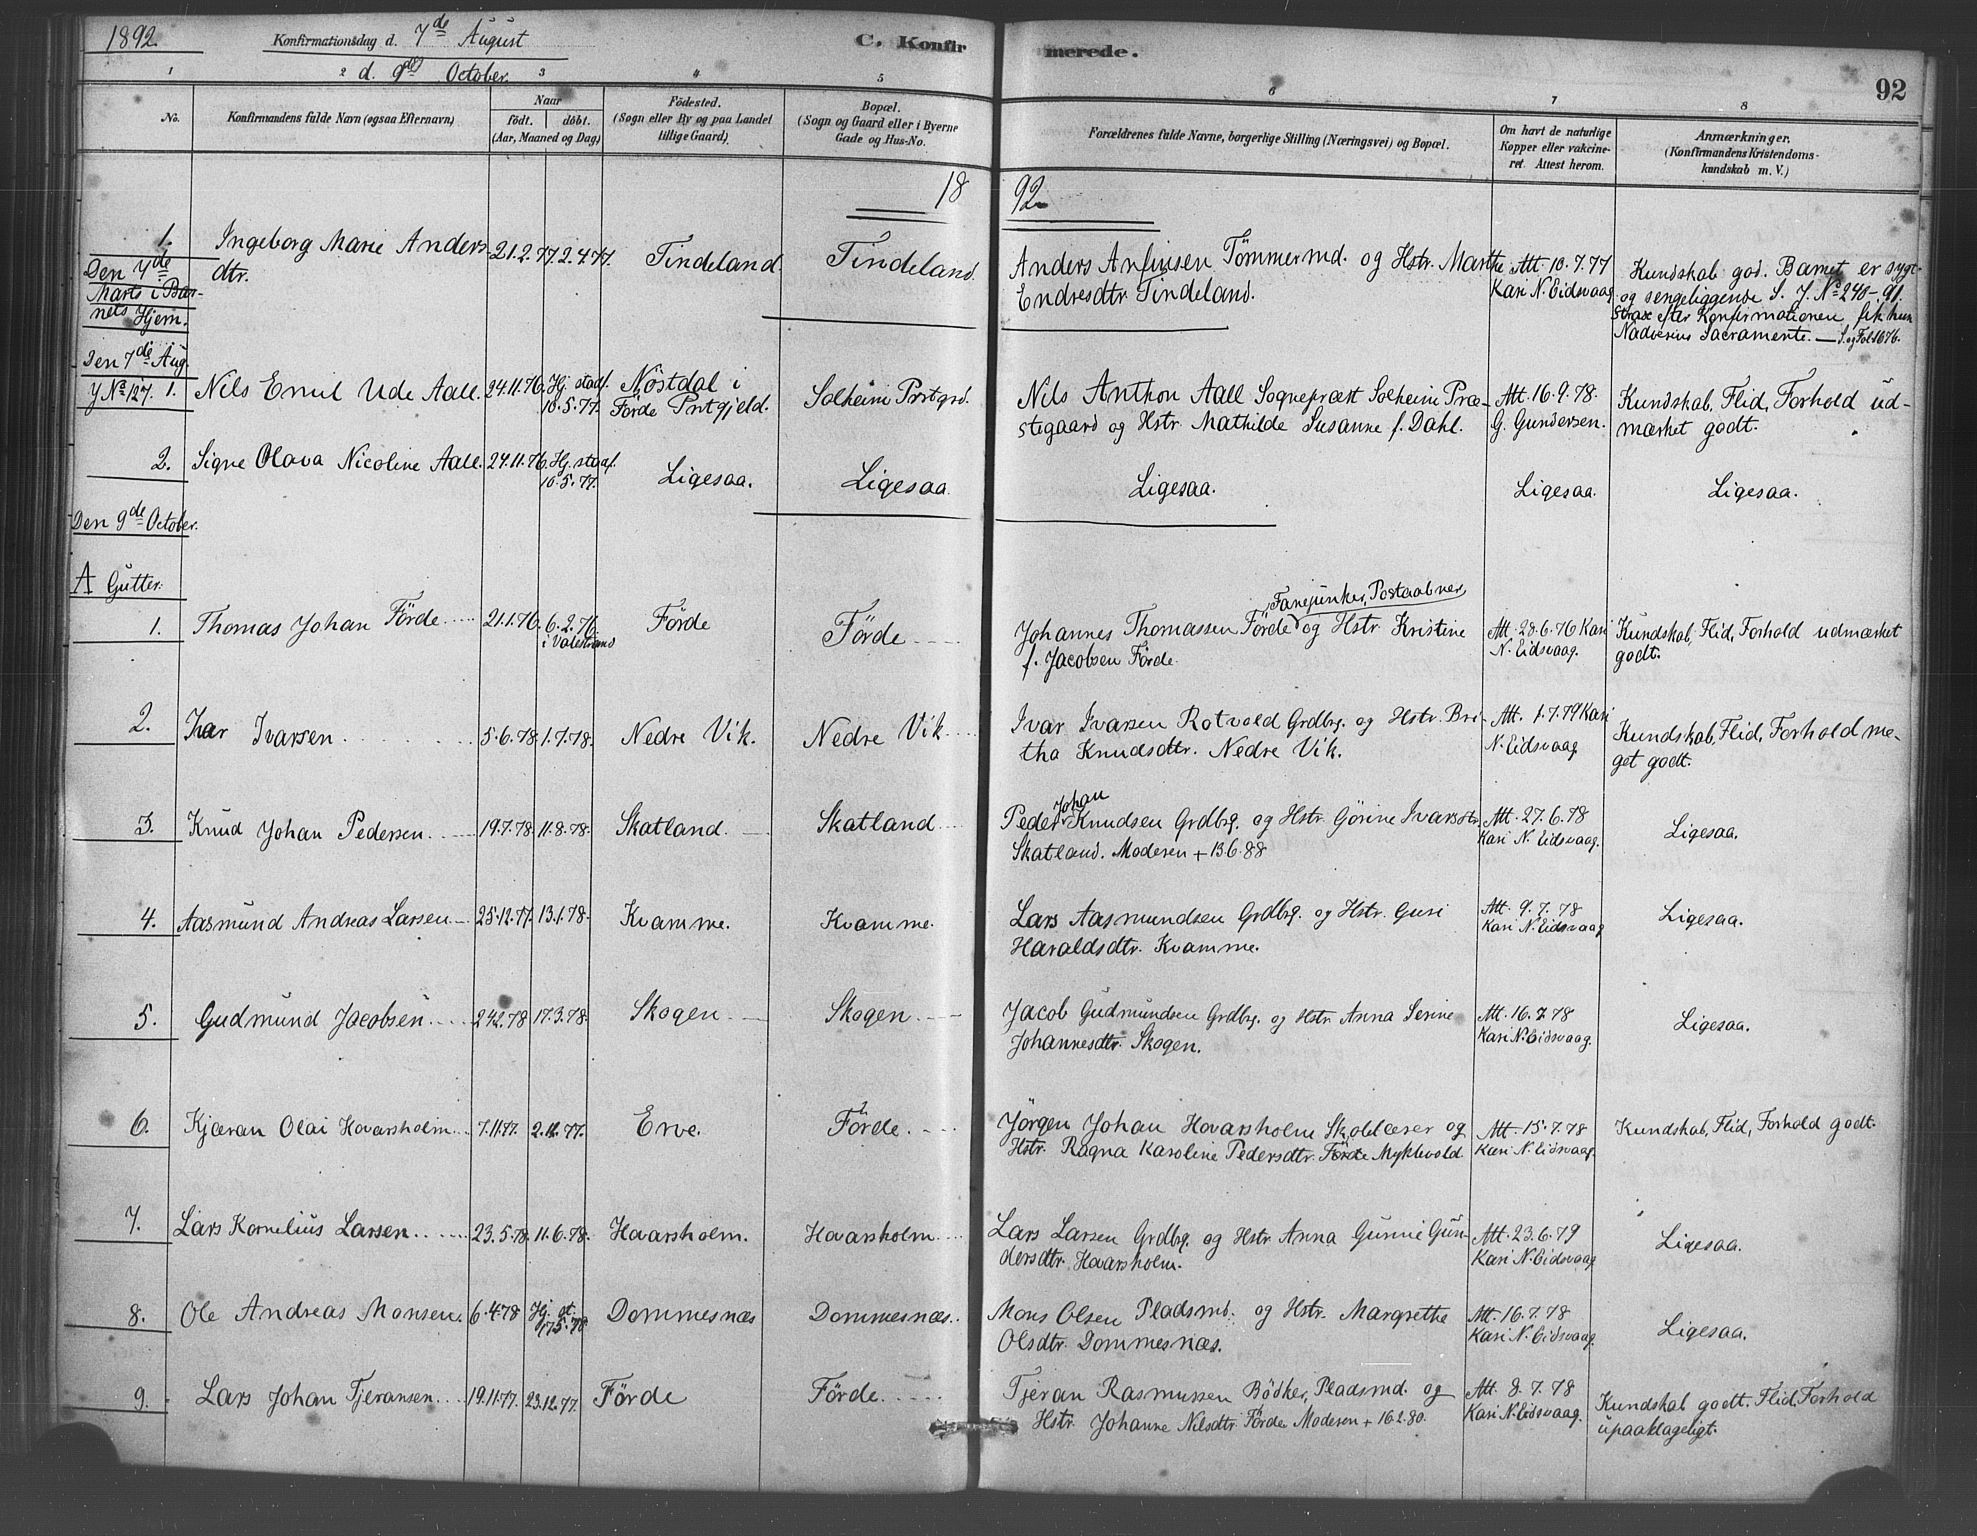 1892. Konfirmationsdag d. 7de August
d. 9de October.
C. Konfirmerede.
92
1 2 3 4 5 6 7 8
No.
Konfirmandens fulde Navn (ogsaa Efternavn)
Naar
födt. döbt.
(Aar, Maaned og Dag)
Födested.
(Sogn eller By og paa Landet
tillige Gaard)
Bopæl.
(Sogn og Gaard eller i Byerne
Gade og Hus-No.
Forældrenes fulde Navne, borgerlige Stilling (Næringsvei) og Bopæl.
Om havt de naturlige
Kopper eller vakcine-
ret. Attest herom.
Anmærkninger.
(Konfirmandens Kristendoms-
kundskab m. V.)
1892
1. Ingeborg Marie Anders- 21.2.77 2.4.77. Tindeland. Tindeland. Anders Anfinsen Tömmermd. og Hstr. Marthe Att. 10.7.77 Kundskab god. Barnet er sygt
dtr. Endresdtr. Tindeland. Kari N. Eidsvaag og sengeliggende S. J. No 248-91.
Den 7de
Marts i Bar-
nets Hjem.
Strax efter Konfirmationen fik hun
Nadverens Sacramente. — S. og Fol 1676.
Den 7de Aug.
J No 127. 1. Nils Emil Ude Aall. 24.11.76. Hj. stadf. Nöstdal i Solheim Prstgrd. Nils Anthon Aall Sognepræst Solheim Præ- Att. 16.9.78. Kundskab, Flid, Forhold ud-
10.5.77. Förde Prstgjeld. stegaard og Hstr. Mathilde Susanne f. Dahl. G. Gundersen. mærket godt.
2. Signe Olava Nicoline Aall. 24.11.76. Hj. stadf. Ligesaa. Ligesaa Ligesaa. Ligesaa. Ligesaa.
10.5.77.
Den 9de October.
A Gutter.
Fanejunker, Postaabner,
1. Thomas Johan Förde 21.1.76. 6.2.76. Förde Förde Johannes Thomassen Förde og Hstr. Kristine Att. 28.6.76 Kari Kundskab, Flid, Forhold udmærket
i Valestrand f. Jacobsen Förde. N. Eidsvaag. godt.
2. Ivar Ivarsen 5.6.78. 1.7.78. Nedre Vik. Nedre Vik Ivar Ivarsen Rotvold Grdbrg. og Hstr. Bri- Att. 1.7.79 Kari Kundskab, Flid, Forhold me-
tha Knudsdtr. Nedre Vik. N. Eidsvaag. get godt.
Johan
3. Knud Johan Pedersen. 19.7.78. 11.8.78. Skatland. Skatland Peder Knudsen Grdbrg. og Hstr. Görine Ivarsdtr. Att. 27.6.78 Ligesaa.
Skatland. Moderen + 13.6.88 Kari N. Eidsvaag.
4. Aasmund Andreas Larsen 25.12.77. 13.1.78. Kvamme. Kvamme. Lars Aasmundsen Grdbrg. og Hstr. Guri Att. 9.7.78 Ligesaa.
Haraldsdtr. Kvamme. Kari N. Eidsvaag
5. Gudmund Jacobsen 24.2.78 17.3.78. Skogen Skogen. Jacob Gudmundsen Grdbrg. og Hstr. Anna Serine Att. 16.7.78 Ligesaa.
Johannesdtr. Skogen. Kari N. Eidsvaag.
6. Kjæran Olai Hovarsholm 7.11.77. 2.12.77. Erve. Förde. Jörgen Johan Hovarsholm Skolelærer og Att. 15.7.78 Kundskab, Flid, Forhold godt.
Hstr. Ragna Karoline Pedersdtr. Förde Myklevold. Kari N. Eidsvaag.
7. Lars Kornelius Larsen 23.5.78. 11.6.78. Hovarsholm. Hovarsholm Lars Larsen Grdbrg. og Hstr. Anna Gunne Gun- Att. 23.6.79 Ligesaa.
dersdtr. Hovarsholm. Kari N. Eidsvaag
8. Ole Andreas Monsen. 6.4.78 Hj. st. Dommesnæs Dommesnæs. Mons Olsen Pladsmd. og Hstr. Margrethe Att. 16.7.78 Ligesaa.
17.5.78 Olsdtr. Dommesnæs. Kari N. Eidsvaag.
9. Lars Johan Tjeransen 19.11.77. 23.12.77. Förde Förde. Tjeran Rasmussen Bödker, Pladsmd. og Att. 8.7.78 Kundskab godt. Flid, Forhold
Hstr. Johanne Nilsdtr. Förde Moderen + 16.2.80. Kari N. Eidsvaag. upaaklageligt.